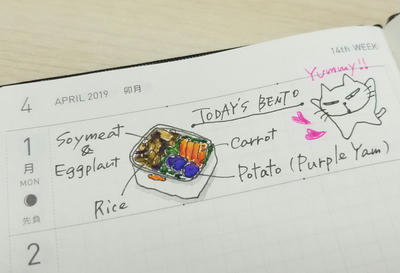 4 APRIL 2019 卯月
14th WEEK
Yummy!!
TODAY'S BENTO
1
月
MON
先負
Soymeat
&
Eggplant
Carrot
Potato (Purple Yam)
Rice
2